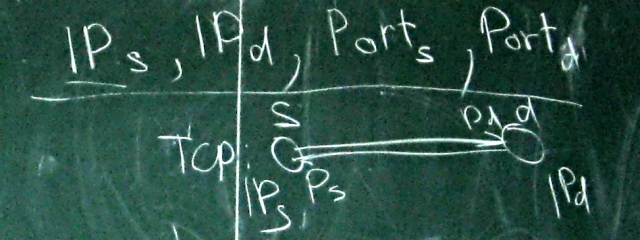 IPs, IPd, Ports, Portd
S Pd d
TCP:
IPs, Ps IPd